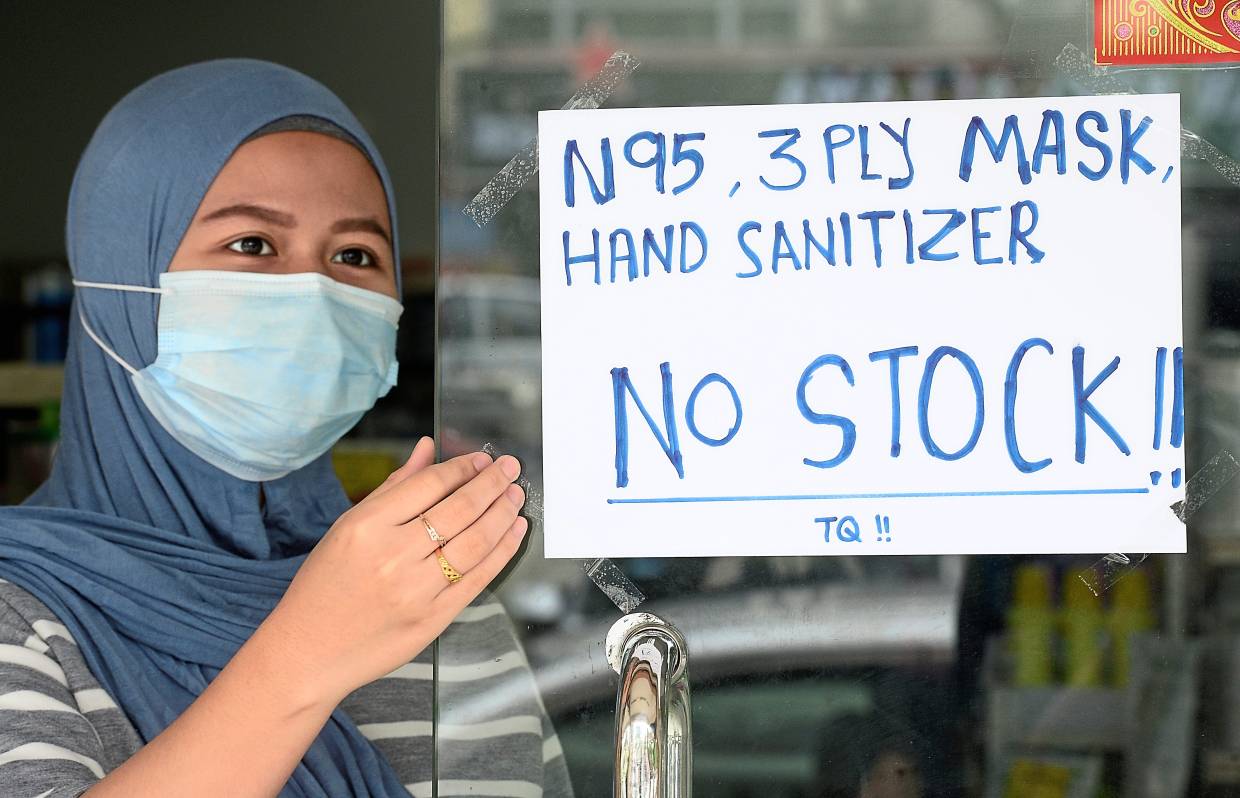 N95, 3 PLY MASK,
HAND SANITIZER
NO STOCK!!
TQ !!